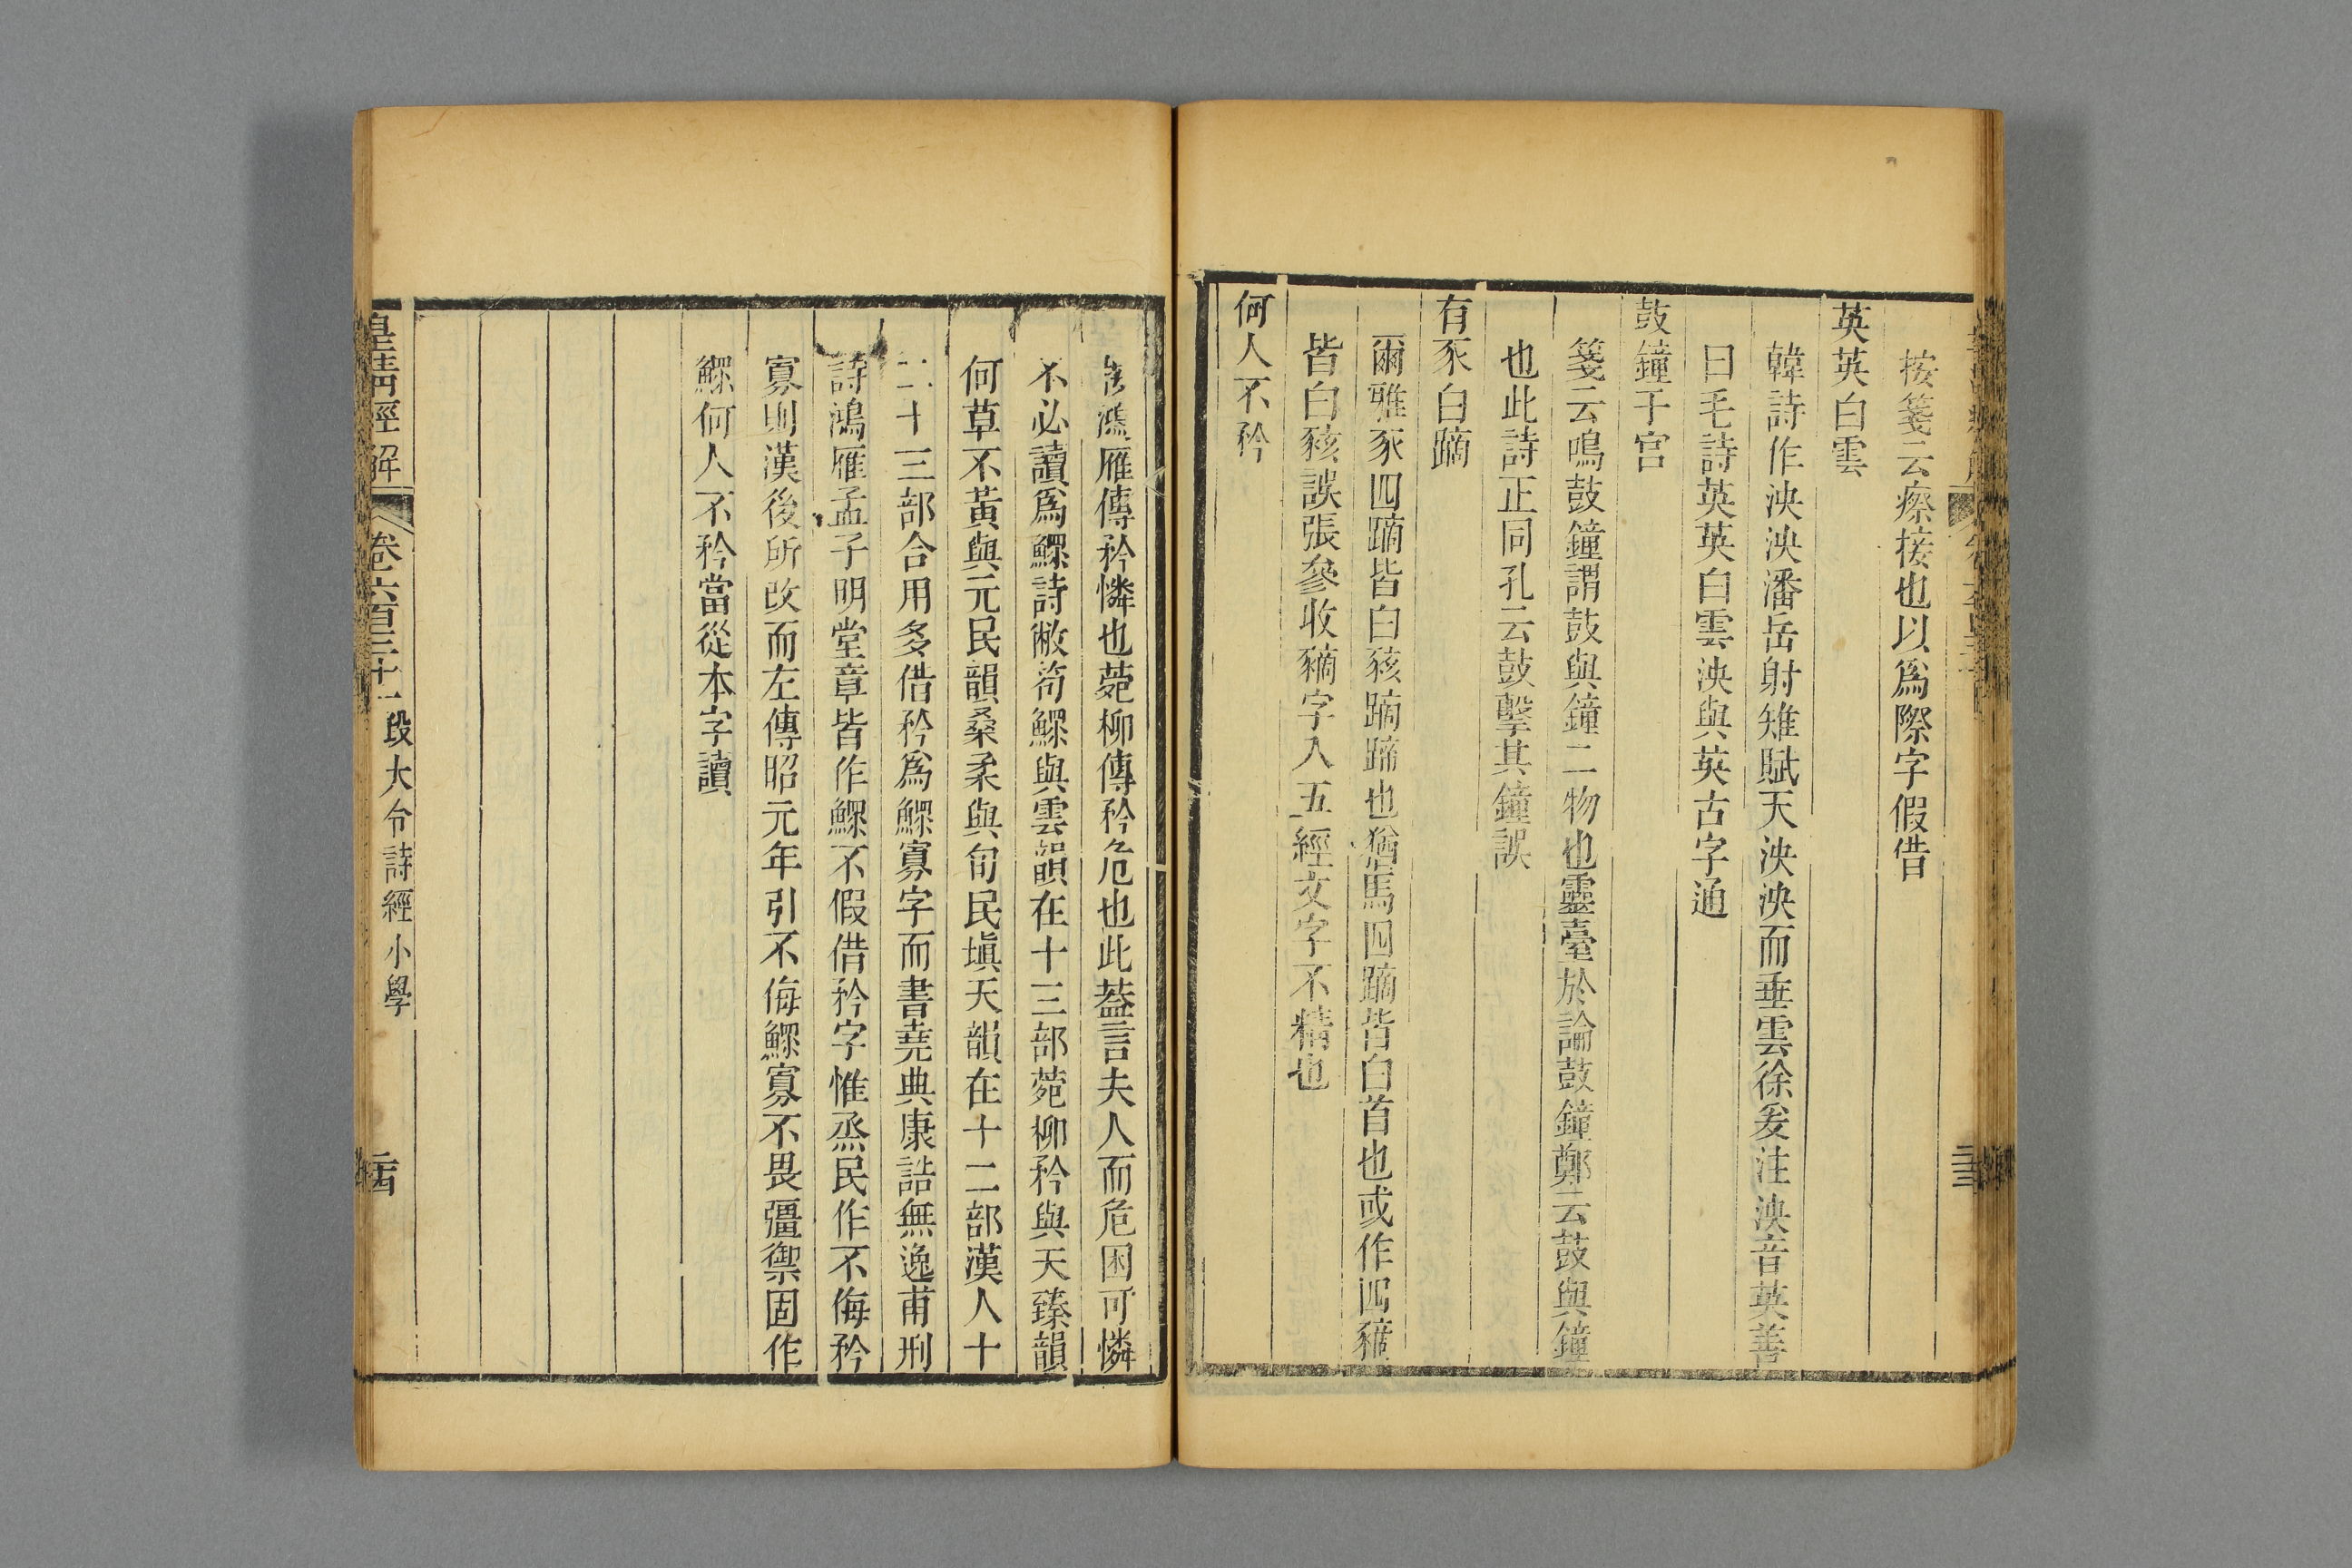 按箋云瘵接也以爲際字假借
英英白雲
韓詩作泱泱潘岳射雉賦天泱泱而垂雲徐爰注泱音英善
曰毛詩英英白雲泱與英古字通
鼓鐘于宮
箋云鳴鼓鐘謂鼓與鐘二物也靈臺於論鼓鐘鄭云鼓與鐘
也此詩正同孔云鼓擊其鐘誤
有豕白蹢
爾雅豕四蹢皆白豥蹢蹄也猶馬四蹢皆白首也或作四豴
皆白豥誤張參收豴字入五經文字不精也
何人不矜
鴻雁傳矜憐也菀柳傳矜危也此葢言夫人而危困可憐
不必讀爲鰥詩敝笱鰥與雲韻在十三部菀柳矜與天臻韻
何草不黃與元民韻桑柔與旬民塡天韻在十二部漢人十
二十三部合用多借矜爲鰥寡字而書堯典康誥無逸甫刑
詩鴻雁孟子明堂章皆作鰥不假借矜字惟烝民作不侮矜
寡則漢後所改而左傳昭元年引不侮鰥寡不畏彊禦固作
鰥何人不矜當從本字讀
皇淸經解 卷六百三十一 段大令詩經小學 二十四